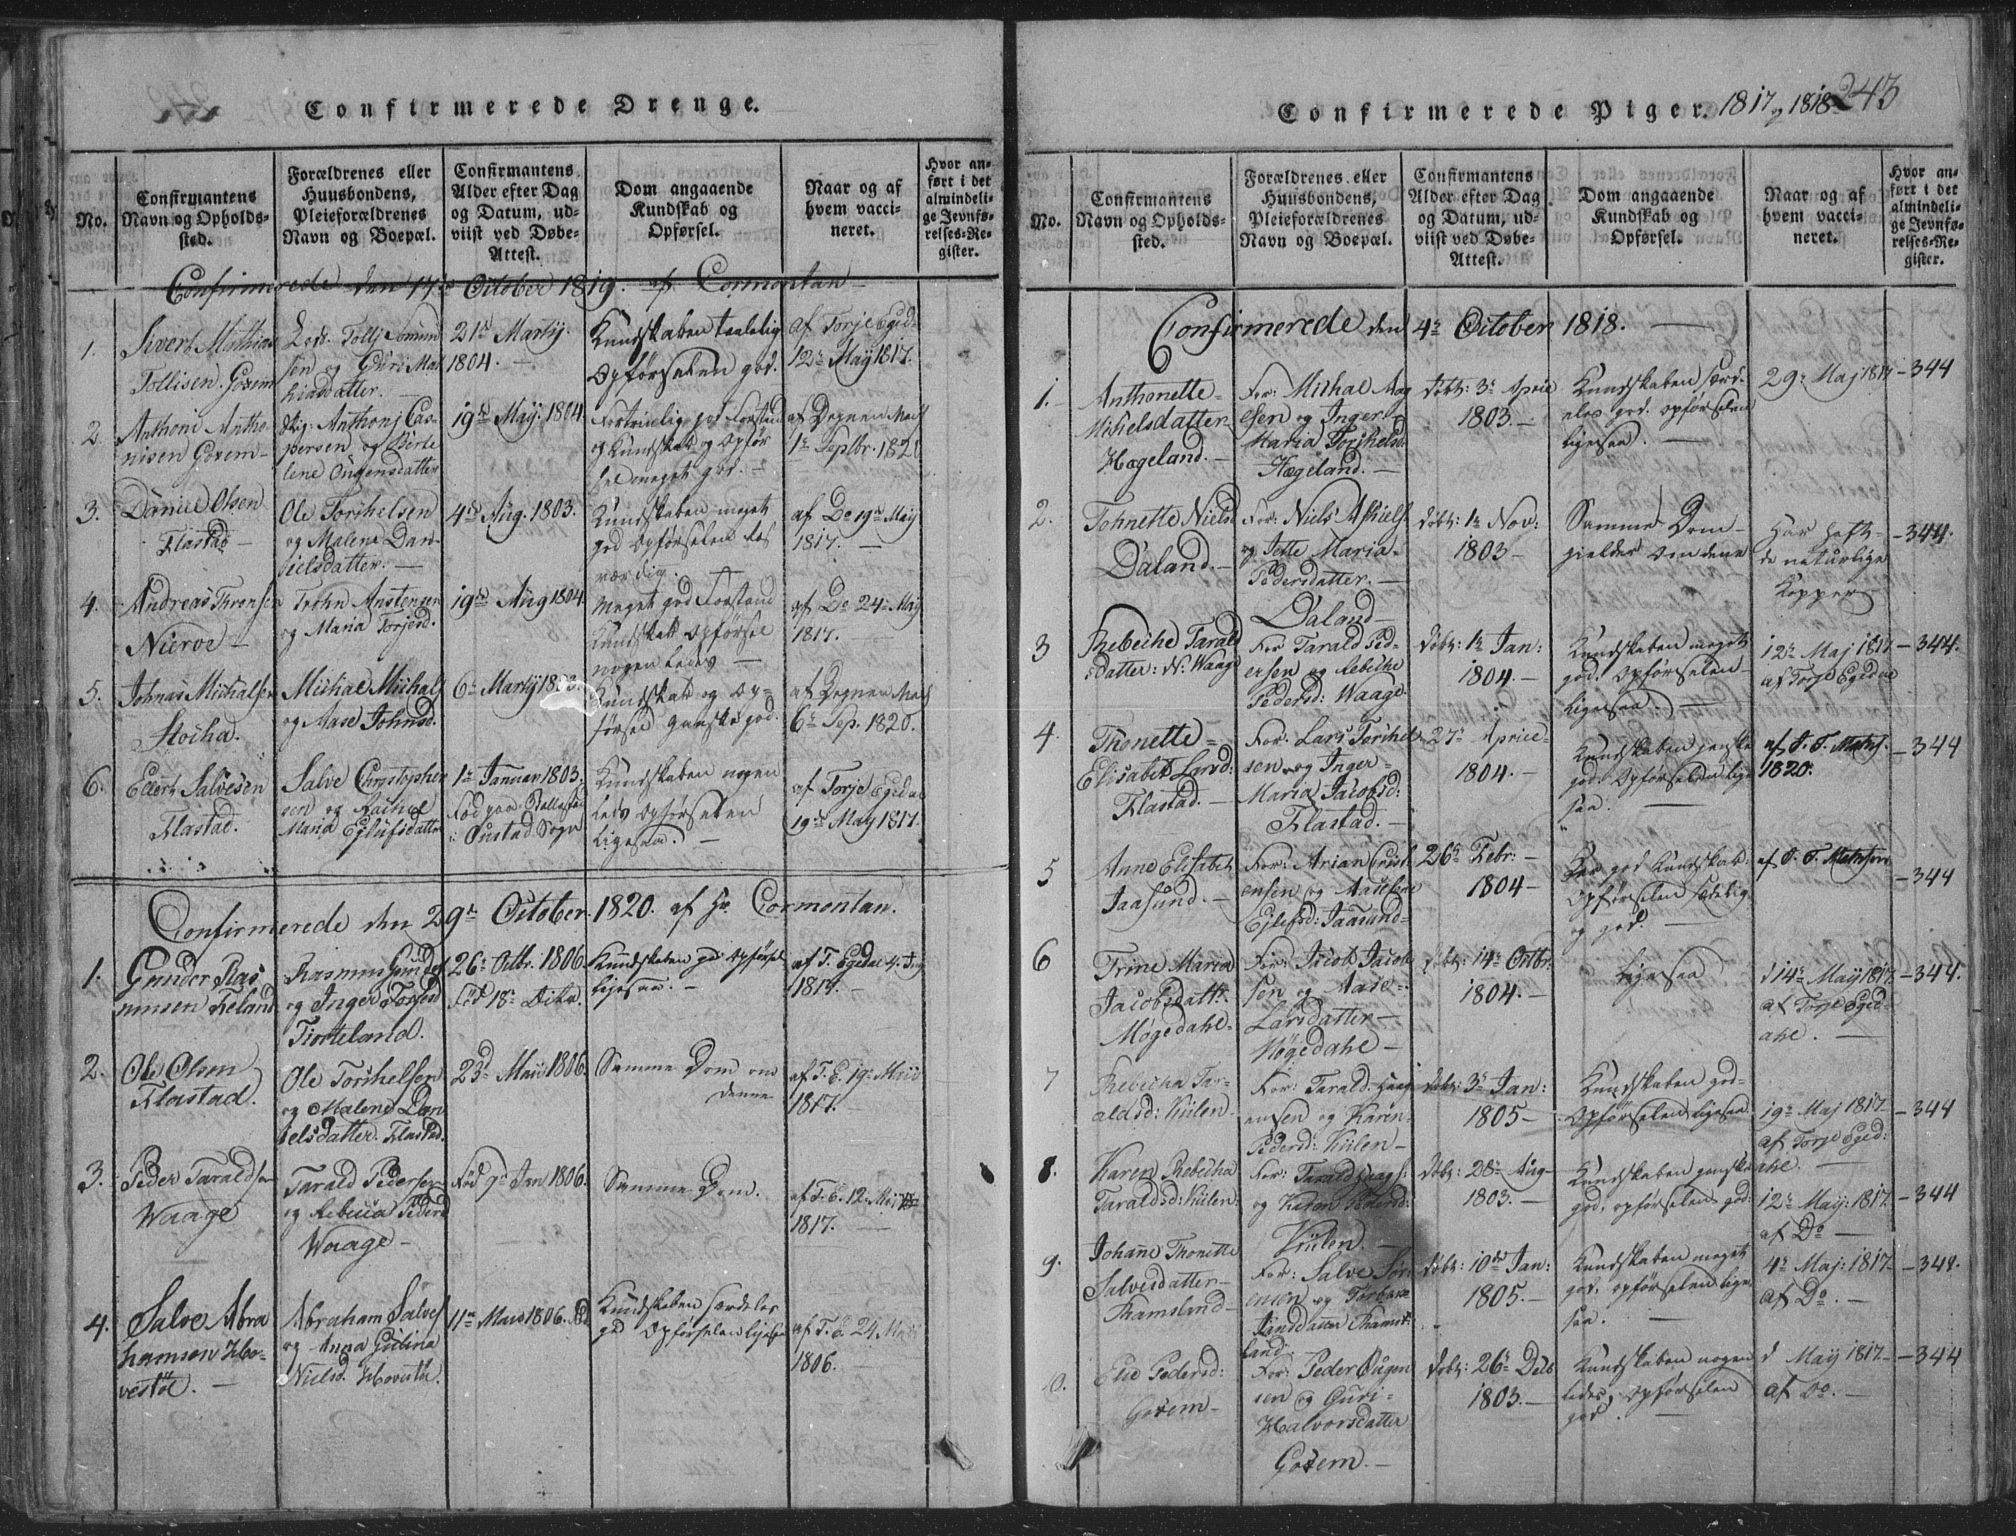 Confirmerede Drenge.
No.
Confirmantens
Navn og Opholds-
sted.
Forældrenes eller
Huusbondens,
Pleieforældrenes
Navn og Boepæl.
Confirmantens
Alder efter Dag
og Datum, ud-
viist ved Døbe-
Attest.
Dom angaaende
Kundskab og
Opførsel.
Naar og af
hvem vacci-
neret.
Hvor an-
ført i det
almindeli-
ge Jevnfø-
relses-Re-
gister.
Confirmerede den 17de October 1819. af Cormontan
1.
Sivert Mathias
Tollisen. Goxem
sen og Guri Mat
hiasdatter.
21de Martij
1804.
Kundskaben taalelig
Opførselen god.
af Torje Eged-
12te Maij 1817.
2.
Anthoni Antho-
nisen Goxem
Anthonj Cas-
persen og Berte
lene Ougensdatter
19de Maij. 1804
og Kundskab og Opfør
sel meget god.
af Degnen Math
1te Septbr. 1820
3.
Daniel Olsen
Flastad
Ole Torkelsen
og Malene Dan-
ielsdatter.
4de Aug. 1803.
Kundskaben meget
god Opførselen
værdig.
af Do 19de Maij
1817.
4.
Andreas Thronsen
Nieroe
Trohn Anstensen
og Maria Torjesd.
19de Aug 1804.
Meget god Forstand
Kundskab Opførsel
nogenledes
af Do 24de Maij
1817.
5.
Johnas Michalsen
Stocka.
Michael Michals
og Aase Johnsd.
6te Martij 1803.
Kundskab og Op-
førsel ganske god.
af Degnen Math
6te Sep. 1820.
6.
Ellert Salvesen
Flastad.
Salve Christophen
sen og Rachel
Maria Ejlufsdatter
1te Januar 1803.
Fød paa
Oustad Sogn
Kundskaben nogen
leds Opførselen
ligesaa.
af Torje Egedal
19de Maij 1817.
Confirmerede den 29de October 1820. af Hr. Cormontan.
1.
Gunder Ras
musen Keland
Rasmus Gunders
og Inger Torjesd
Tiorteland.
26de Octbr. 1806
Fød 18de Dito.
Kundskaben god Opførsel
ligesaa.
af T. Egedal 4. Maij
1817.
2.
Ole Olsen
Flastad.
Ole Torkelsen
og Malene Dan
ielsdatter. Flastad.
23de Maii 1806.
Samme Dom om
denne
af T. E. 19de Maii
1817.
3.
Peder Taraldsen
Waage
Tarald Pedersen
og Rebecca Peders
Waage
Fød 9de Jan 1806.
Samme Dom.
af T. E. 12te Maii
1817.
4.
Salve Abra
hamsen Ho-
vestøl.
Abraham Salves
og Anna Gulina
Nielsd. Hovestøl.
11te Mars 1806.
Kundskaben særdeles
god Opførselen ligesaa
af T. E. 24. Maii
1806.
Confirmerede Piger. 1817 og 1818 243
No.
Confirmantens
Navn og Opholds-
sted.
Forældrenes eller
Huusbondens,
Pleieforældrenes
Navn og Boepæl.
Confirmantens
Alder efter Dag
og Datum, ud-
viist ved Døbe-
Attest.
Dom angaaende
Kundskab og
Opførsel.
Naar og af
hvem vacci-
neret.
Hvor an-
ført i det
almindeli-
ge Jevnfø-
relses-Re-
gister.
Confirmerede den 4de October 1818.
1.
Anthonette
Michelsdatter
Hægeland.
For: Michal Aag
esen og Inger
Maria Torkelsd
Hægeland.
Døbt: 3de April
1803.
Kundskaben særd-
eles god. Opførselen
ligesaa.
29de Maj 1817
344
2.
Tohnette Nielsd
Daland.
For: Niels Askiels
og Jette Maria
Pedersdatter.
Daland
Døbt: 1te Nov:
1803
Samme Dom
gielder om denne
Har haft
de naturlige
Kopper
344.
3
Rebeche Tarald
sdatter: N. Waage
For Tarald Ped-
ersen og Rebeche
Pedersd: Waage.
Døbt: 1te Jan:
1804.
Kundskaben meget
god. Opførselen
ligesaa.
12te Maj 1817
af Torje Egedal
344.
4.
Thonette
Elisabet Larsd:
Flastad.
For: Lars Torkel-
sen og Inger
Maria Jacobsd:
Flastad.
27de April
1804.
Kundskaben ganske
god. Opførselen lige
saa.
af T. T. Maths.
1820.
344
5
Anne Elisabet
Jaasund.
For: Arian
ensen og Aaselene
Ejlefsd: Jaasund
26de Febr:
1804
god Kundskab.
Opførselen sædelig
og god.
af T. T. Mathsen
344
6
Trine Maria
Jacobsdatt.
Møgedahl
For: Jacob Jacob
sen og Aase
Larsdatter
Møgedahl
Døbt: 14de Octbr.
1804.
Ligesaa
d 14de Maij 1817
af Torje Eged-
ahl.
344.
7
Rebecha Tar-
aldsd: Kiilen.
For: Tarald Haag-
ensen og Karen
Pedersd: Kiilen
Døbt: 3de Jan:
1805
Kundskaben god
Opførselen ligesaa
19de Maj 1817
af Torje Eged:
ahl.
344
8.
Karen Rebecha
Taraldsd: Kiilen.
For: Tarald Haags.
og Karen Pedersd:
Kiilen.
Døbt: 28de Aug
1803.
Kundskaben ganske
god. Opførselen god:
12te Maij: 1817
af Do
344
9.
Johanne Thonette
Salvesdatter
Thamsland
For: Salve Sør-
ensen og Torbara
Handdatter Thams-
land.
Døbt: 10de Jan:
1805.
Kundskaben meget
god. Opførselen lige
saa.
4de Maj: 1817
af Do.
344.
0.
Else Pedersd:
Goxem
For: Peder Ougen
sen og Guri
Halvorsdatter
Goxem.
Døbt: 26de Decb
1803.
Kundskaben nogen
ledes, Opførselen
god.
d Maij 1817
af Do.
344